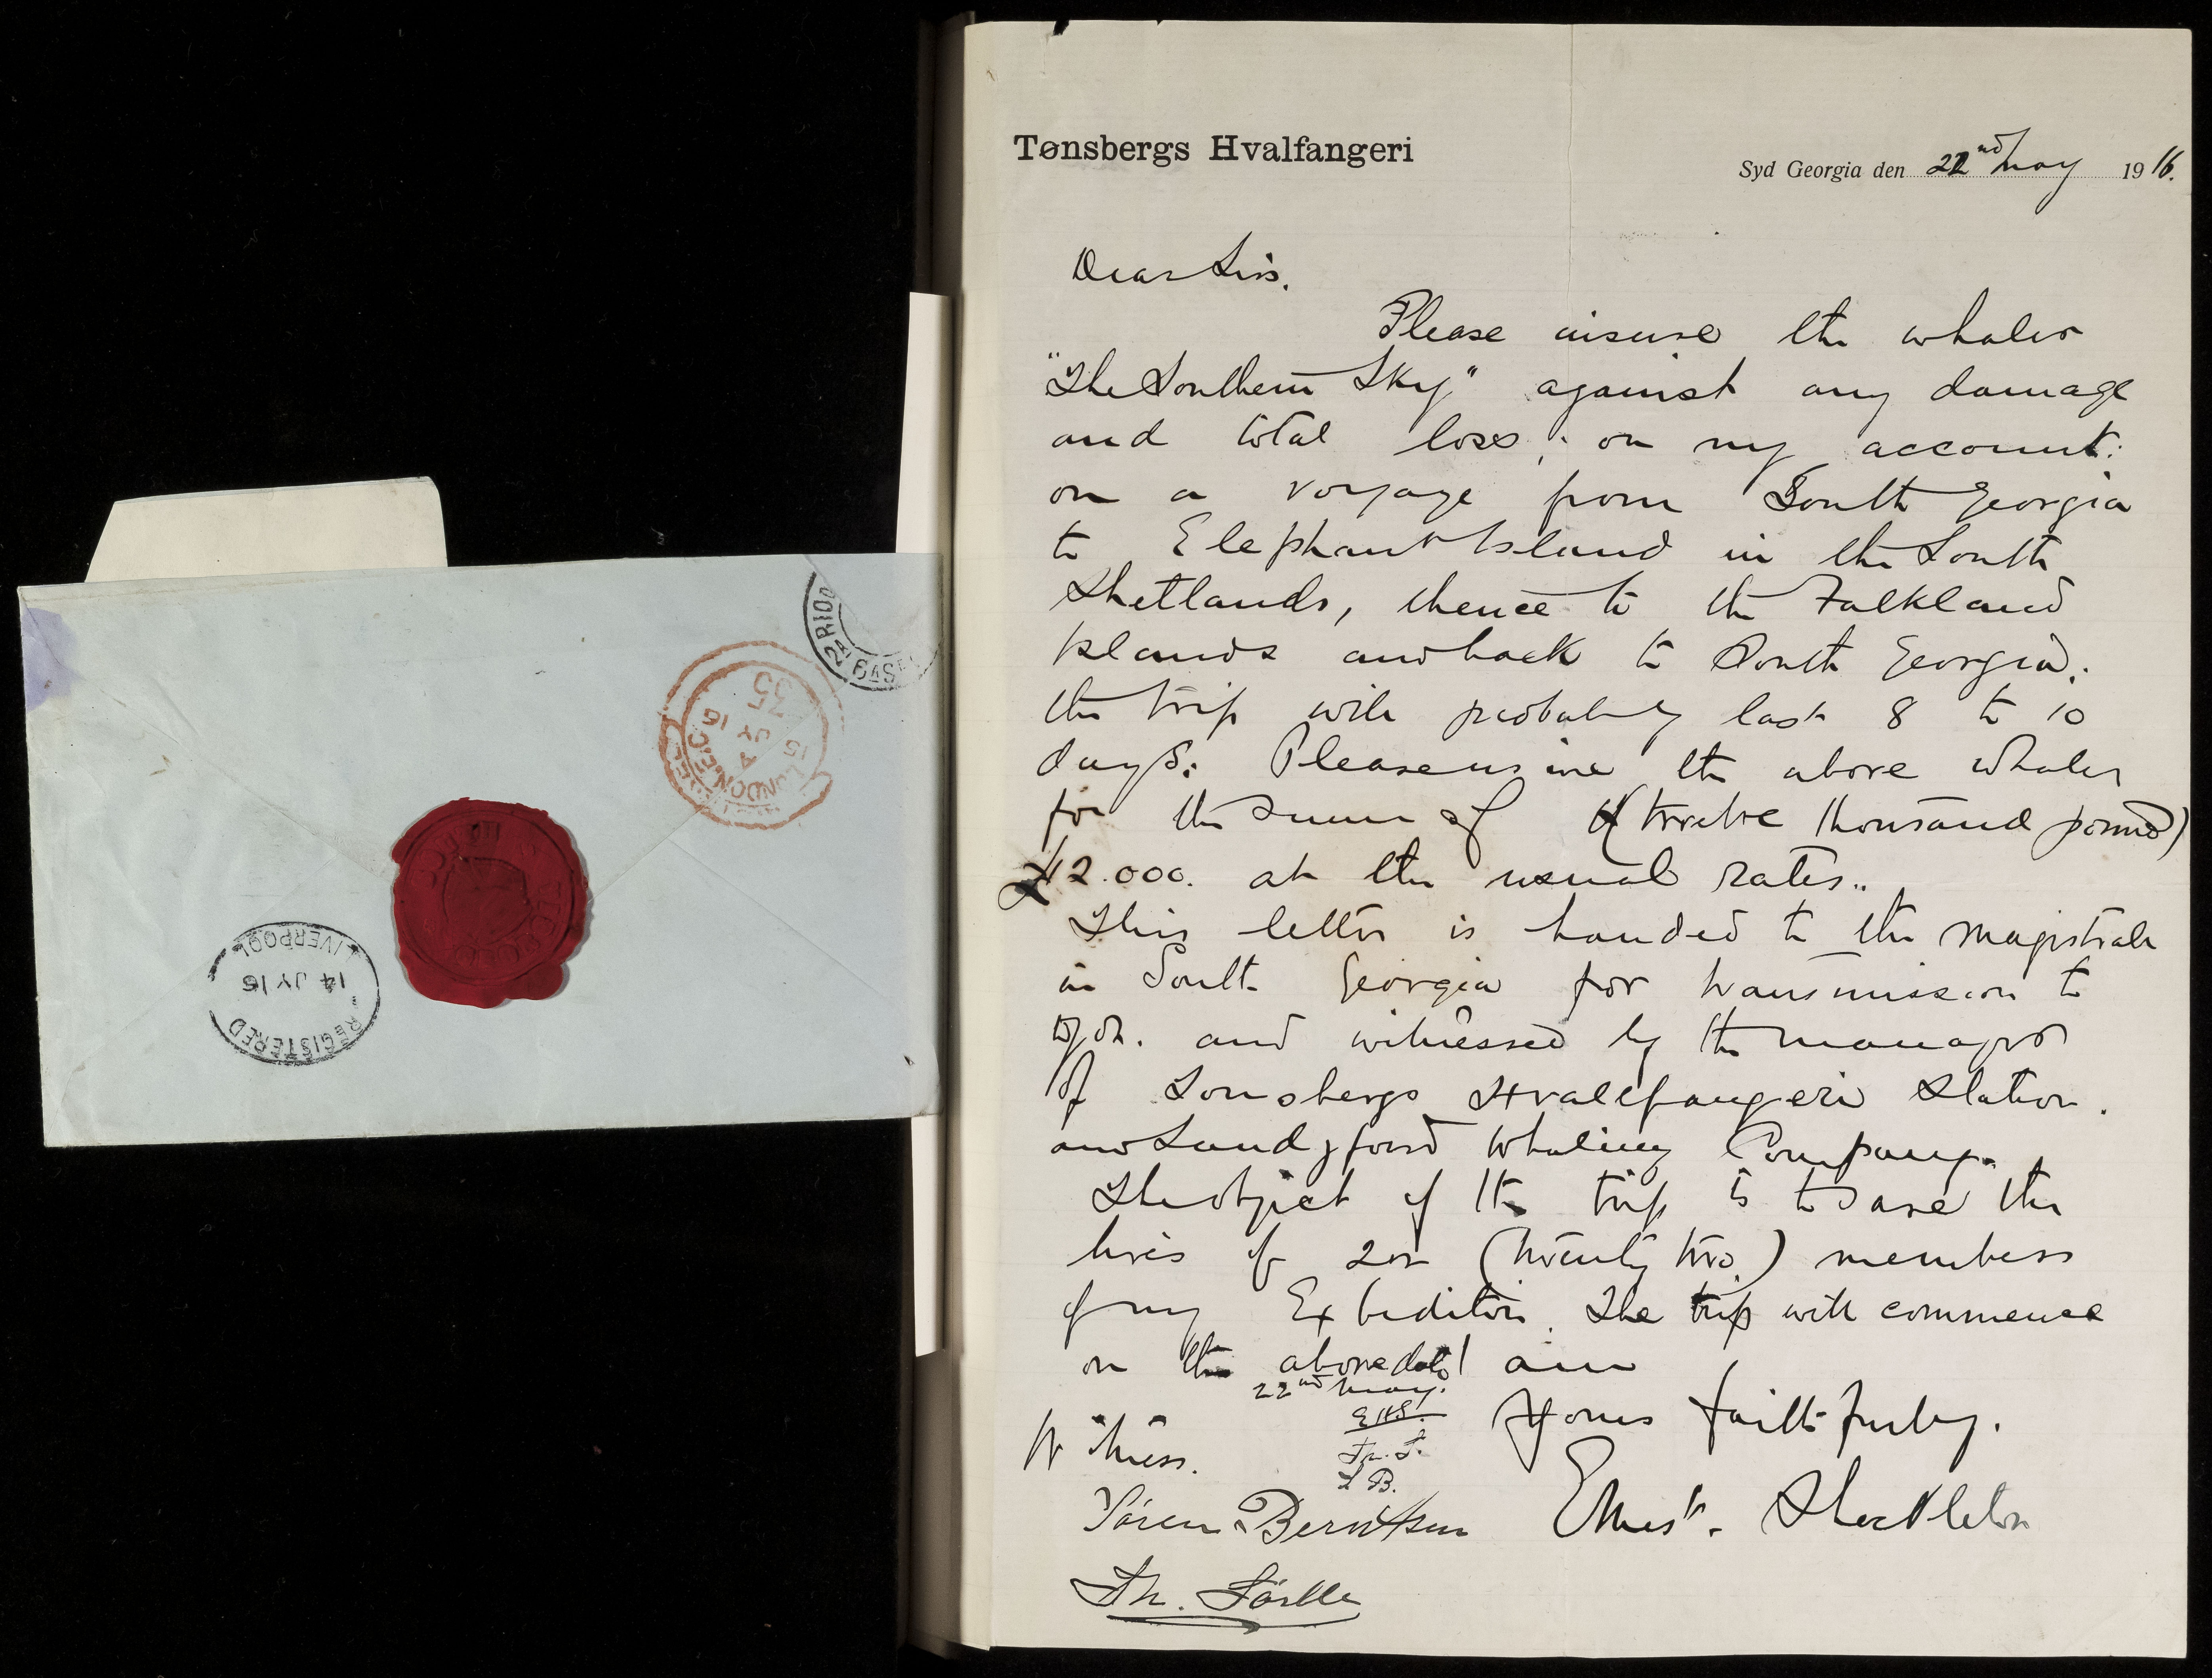 Tønsbergs Hvalfangeri
Syd Georgia den 22nd May 1916.
Dear Sirs.
Please insure the whaler
"The Southern Sky" against any damage
and total loss, on my account:
on a voyage from South Georgia
to Elephant Island in the South
Shetlands, thence to the Falkland
Islands and back to South Georgia.
the trip will probably last 8 to 10
days. Please insure the above whaler
for the sum of (twelve thousand pound)
£12.000. at the usual rates..
This letter is handed to the magistrate
in South Georgia for transmission to
and witnessed by the manager
of Tonsbergs Hvalefangeri Station.
and Sandefjord Whaling Company.
The object of the trip is to save the
lives of 22 (twenty two) members
of my Expedition. The trip will commence
on the above date I am
22nd May.
EHS.
Th. S.
S B.
Yours faithfully.
Witness.
Ernest. Shackleton
Søren Berntsen
Th. Sørlle
REGISTERED
14 JY 16
LIVERPOOL
LONDON.E.C.
4
15 JY 16
35